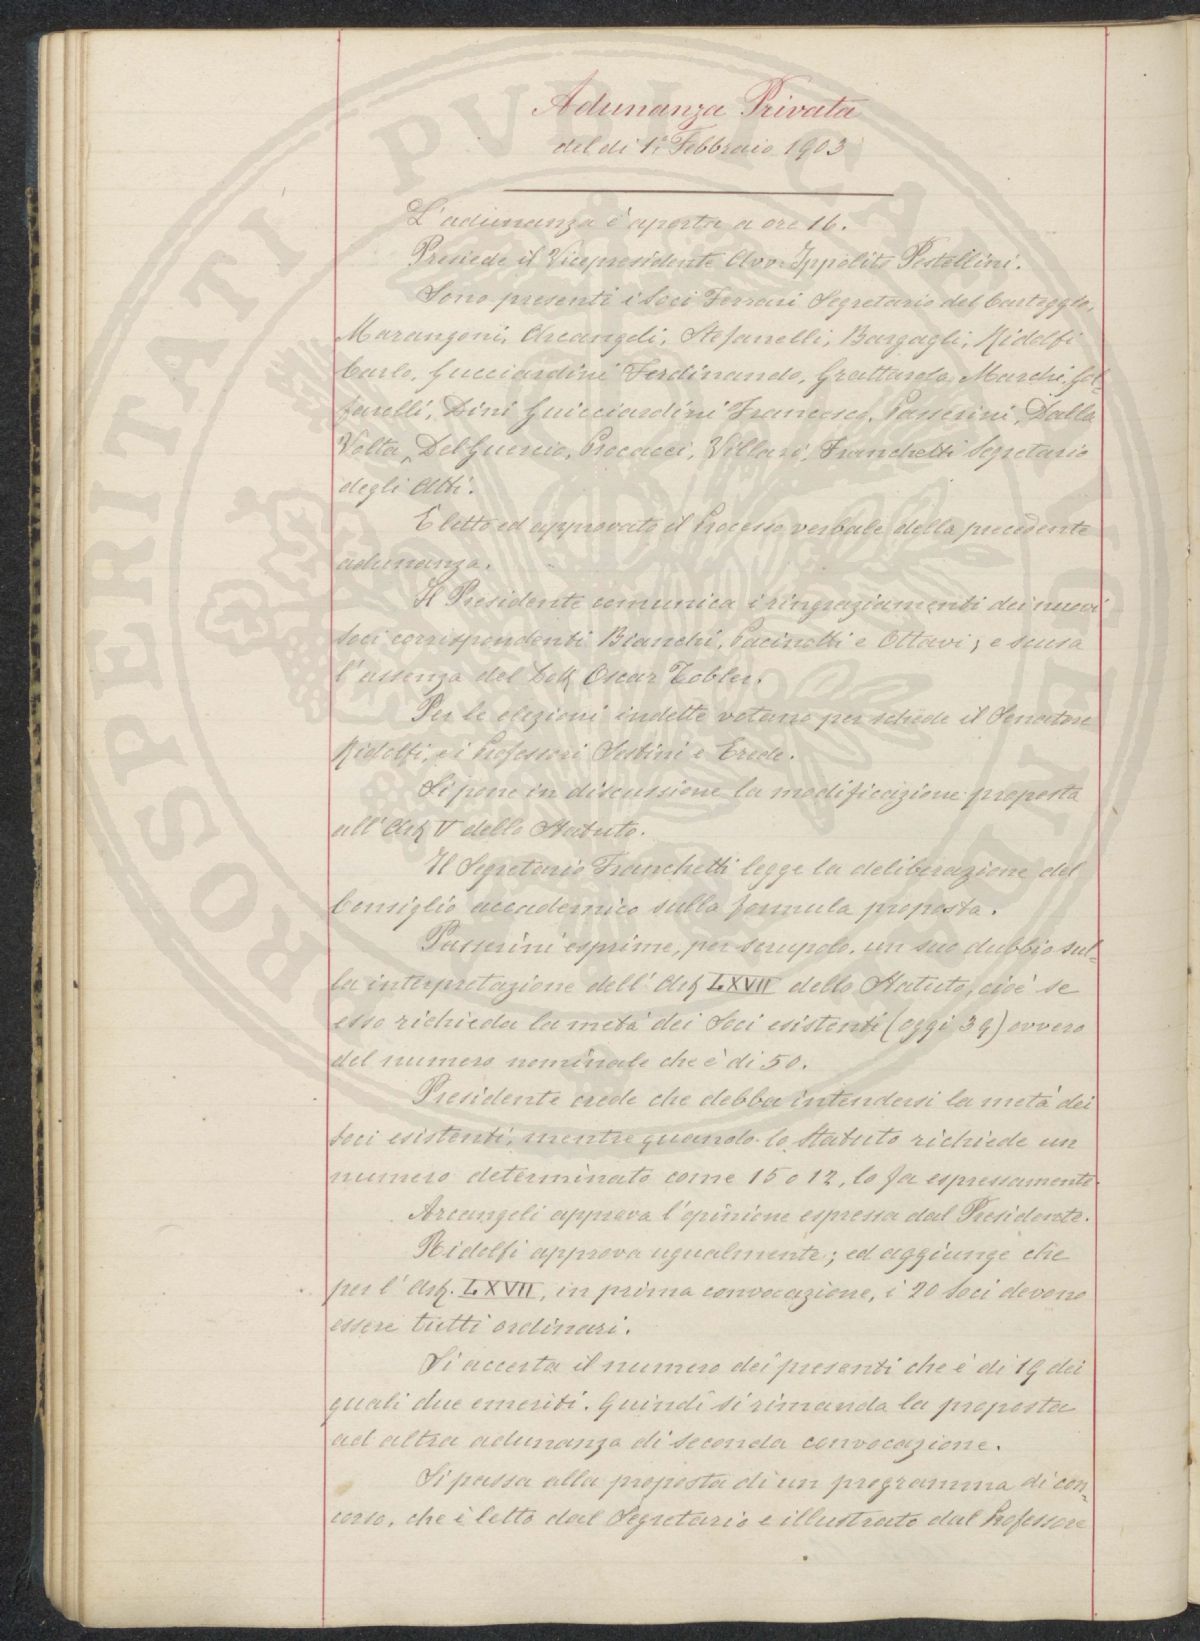 Adunanza Privata
del dì 1° Febbraio 1903
L'adunanza è aperta a ore 16.
Presiede il Vicepresidente Avv. Ippolito Pestellini.
Sono presenti i Soci Ferrari Segretario del Carteggio,
Marangoni, Arcangeli, Stefanelli, Bargagli, Ridolfi
Carlo, Gucciardini Ferdinando, Grattarola, Marchi, Gol-
farelli, Dini Guicciardini Francesco, Passerini, Dalla
Volta, Del Guercio, Procacci, Villari, Franchetti Segretario
degli Atti.
È letto ed approvato il Processo verbale della precedente
adunanza.
Il Presidente comunica i ringraziamenti dei nuovi
Soci corrispondenti Bianchi, Pacinotti e Ottavi; e scusa
l'assenza del Dott. Oscar Tobler.
Per le elezioni indette votano per schede il Senatore
Ridolfi, e i Professori Sestini e Erede.
Si pone in discussione la modificazione proposta
all'Art. V dello Statuto.
Il Segretario Franchetti legge la deliberazione del
Consiglio accademico sulla formula proposta.
Passerini esprime, per scrupolo, un suo dubbio sul-
la interpretazione dell'Art. LXVII dello Statuto, cioè se
esso richieda la metà dei Soci esistenti (oggi 39) ovvero
del numero nominale che è di 50.
Presidente crede che debba intendersi la metà dei
Soci esistenti, mentre quando lo Statuto richiede un
numero determinato come 15 o 12, lo fa espressamente.
Arcangeli approva l'opinione espressa dal Presidente.
Ridolfi approva ugualmente; ed aggiunge che
per l'Art. LXVII, in prima convocazione, i 20 Soci devono
essere tutti ordinari.
Si accerta il numero dei presenti che è di 19 dei
quali due emeriti. Quindi si rimanda la proposta
ad altra adunanza di seconda convocazione.
Si passa alla proposta di un programma di con-
corso, che è letto dal Segretario e illustrato dal Professore
PROSPERITATI PVBLICAE AVGENDAE